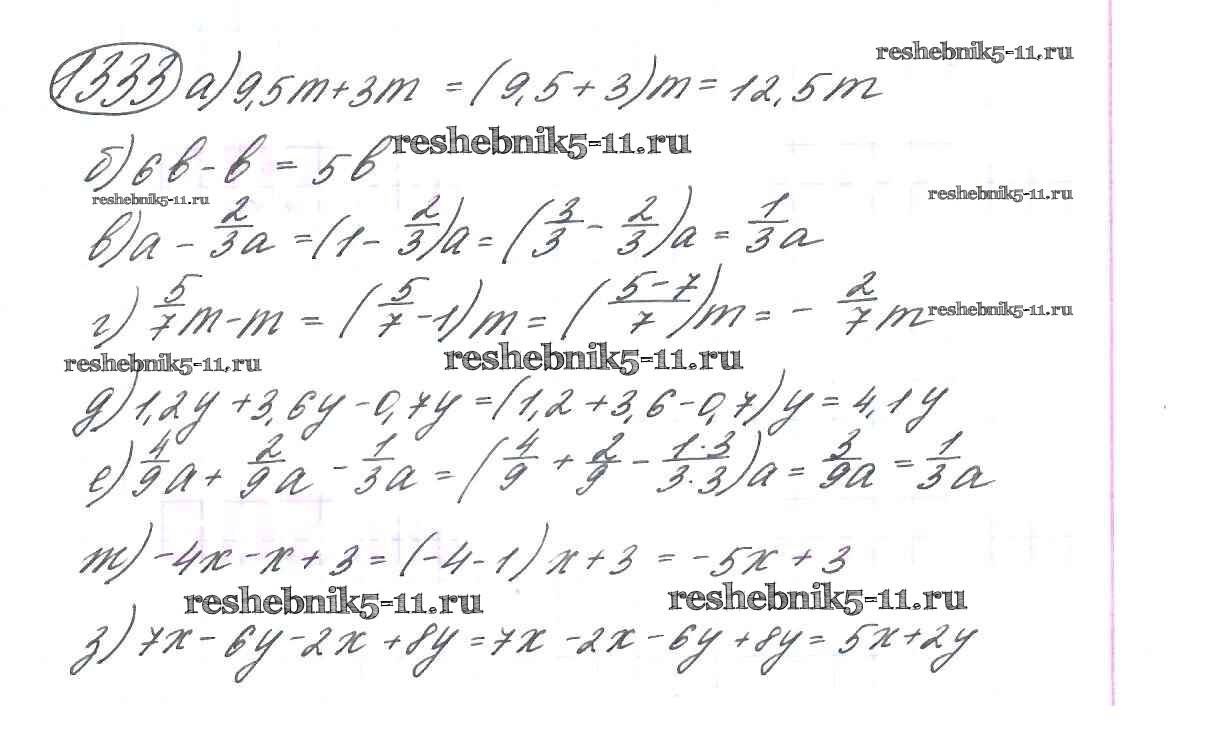 reshebnik5-11.ru
1333 а) 9,5m + 3m = (9,5 + 3)m = 12,5m
reshebnik5-11.ru
б) 6b - b = 5b
reshebnik5-11.ru reshebnik5-11.ru
в) a - 2/3 a = (1 - 2/3)a = (3/3 - 2/3)a = 1/3 a
г) 5/7 m - m = (5/7 - 1)m = ((5-7)/7)m = - 2/7 m reshebnik5-11.ru
reshebnik5-11.ru reshebnik5-11.ru
д) 1,2y + 3,6y - 0,7y = (1,2 + 3,6 - 0,7)y = 4,1y
е) 4/9 a + 2/9 a - 1/3 a = (4/9 + 2/9 - (1·3)/(3·3))a = 3/9 a = 1/3 a
т) -4x - x + 3 = (-4 - 1)x + 3 = -5x + 3
reshebnik5-11.ru reshebnik5-11.ru
з) 7x - 6y - 2x + 8y = 7x - 2x - 6y + 8y = 5x + 2y